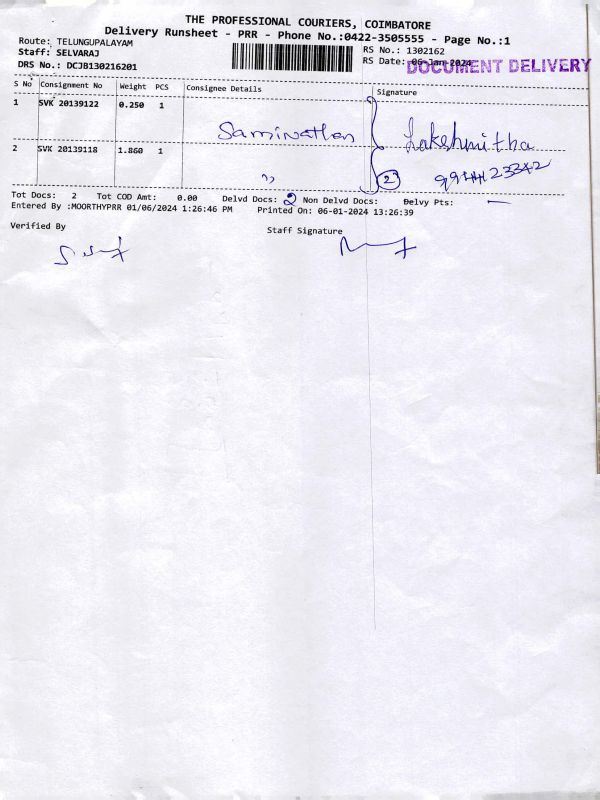 THE PROFESSIONAL COURIERS, COIMBATORE
Delivery Runsheet - PRR - Phone No.:0422-3505555 - Page No.:1
Route: TELUNGUPALAYAM
RS No.: 1302162
Staff: SELVARAJ
RS Date: 06-Jan-2024
DOCUMENT DELIVERY
DRS No.: DCJB130216201
S No Consignment No Weight PCS Consignee Details Signature
1 SVK 20139122 0.250 1
Saminathan Lakshmitha
2 SVK 20139118 1.860 1
,, 2
Tot Docs: 2 Tot COD Amt: 0.00 Delvd Docs: 2 Non Delvd Docs: Delvy Pts: —
Entered By :MOORTHYPRR 01/06/2024 1:26:46 PM Printed On: 06-01-2024 13:26:39
Verified By Staff Signature